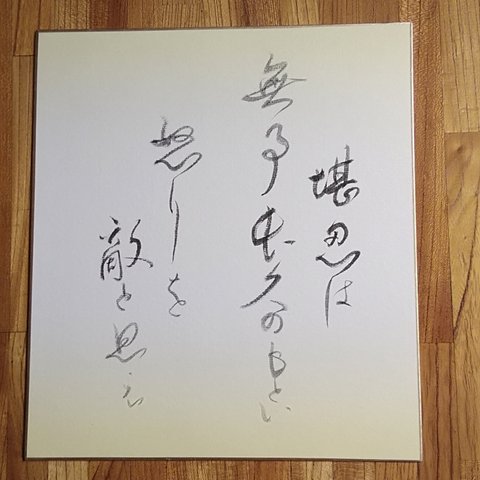 堪忍は
無事長久のもとい
怒りを
敵と思え